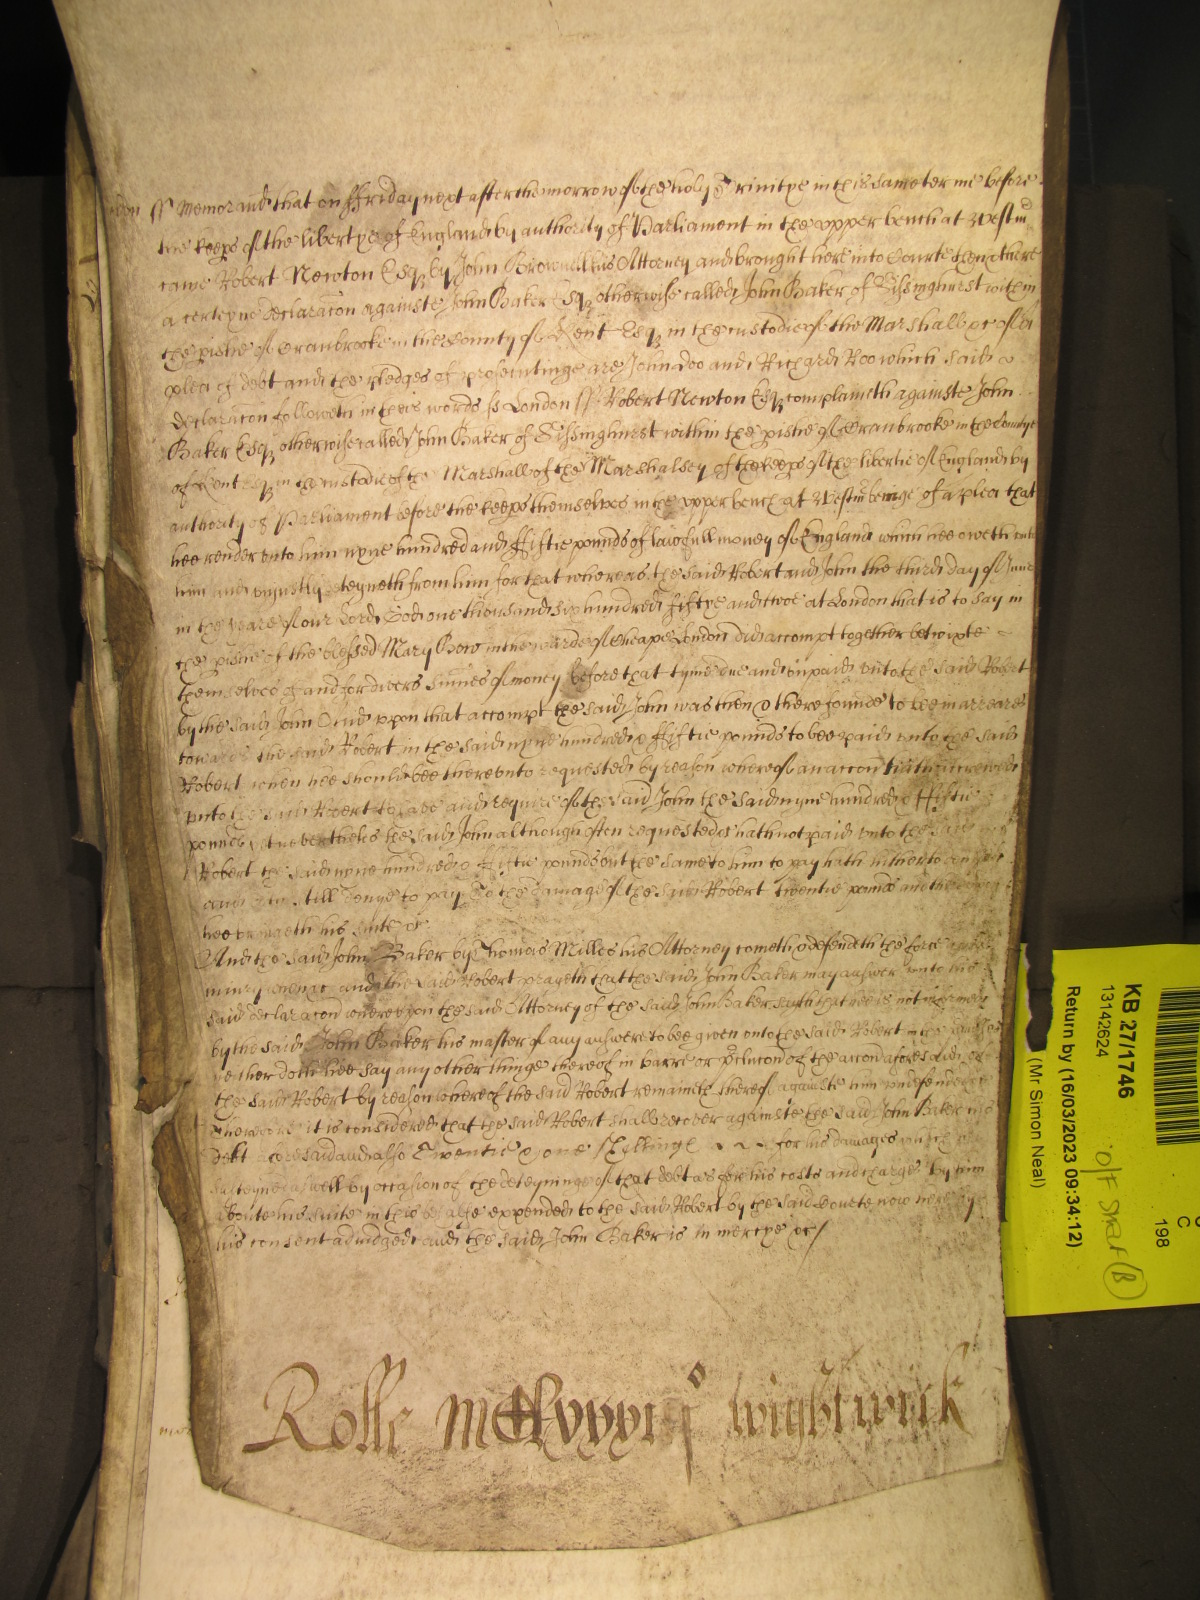 ss Memorand that on ffriday next after the morrow of the holy Trinitye in this same terme before
the keeps of the libertye of England by authority of Parliament in the vpper bench at Westm
came Robert Newton Esq by John Brownell his Attorney and brought here into Courte then there
a certeyne declaracon againste John Baker Esq otherwise called John Baker of Sissinghurst within
the pishe of Cranbrooke in the County of Kent Esq in the custodie of the Marshall &c of a
plea of debt and the pledges of prosecutinge are John Doo and Richard Roo which said
declaracon followeth in theis words ss London ss Robert Newton Esq complaineth againste John
Baker Esq otherwise called John Baker of Sissinghurst within the pishe of Cranbrooke in the Countye
of Kent Esq in the custodie of the Marshall of the Marshalsey of the keeps of the libertie of England by
authority of Parliament before the keeps themselves in the vpper bench at Westm beinge of a plea that
hee render vnto him nyne hundred and ffiftie pounds of lawfull money of England which hee oweth vnto
him and vniustly deteyneth from him for that whereas the said Robert and John the third day of June
in the yeare of our Lord God one thousand six hundred fiftye and twoe at London that is to say in
the pishe of the blessed Mary Bow in the warde of Cheape London did accompt together betwixte
themselves of and for divers summes of money before that tyme due and vnpaid vnto the said Robert
by the said John And vpon that accompt the said John was then & there founde to bee in arreares
towards the said Robert in the said nyne hundred & ffiftie pounds to bee paid vnto the said
Robert when hee should bee therevnto requested by reason whereof an accon hath accrewed
vnto the said Robert to have and require of the said John the said nyne hundred & ffiftie
pounds yet neverthelesse the said John although often requested &c hath not paid vnto the said
Robert the said nyne hundred & ffiftie pounds but the same to him to pay hath hitherto denyed
and doth still denye to pay To the damage of the said Robert twentie pounds and thereupon
hee bringeth his suite &c
And the said John Baker by Thomas Milles his Attorney cometh & defendeth the force and
iniury when &c and the said Robert prayeth that the said John Baker may answer vnto his
said declaracon whereupon the said Attorney of the said John Baker saith that hee is not informed
by the said John Baker his master of any answere to bee given vnto the said Robert in the
neither doth hee say any other thinge thereof in barre or pclucon of the accon aforesaid of
the said Robert by reason whereof the said Robert remaineth thereof againste him vndefended
Therefore it is considered that the said Robert shall recover againste the said John Baker his
debt aforesaid and also Twentie & one shillinge for his damages which he
susteyned aswell by occasion of the deteyninge of that debt as for his costs and charges by him
aboute his suite in this behalfe expended to the said Robert by the said Courte now here by
his consent adiudged and the said John Baker is in mercye &c/
Rolle wightwick
KB 27/1746
13142624
Return by (16/03/2023 09:34:12)
(Mr Simon Neal)
198
C
off Star B